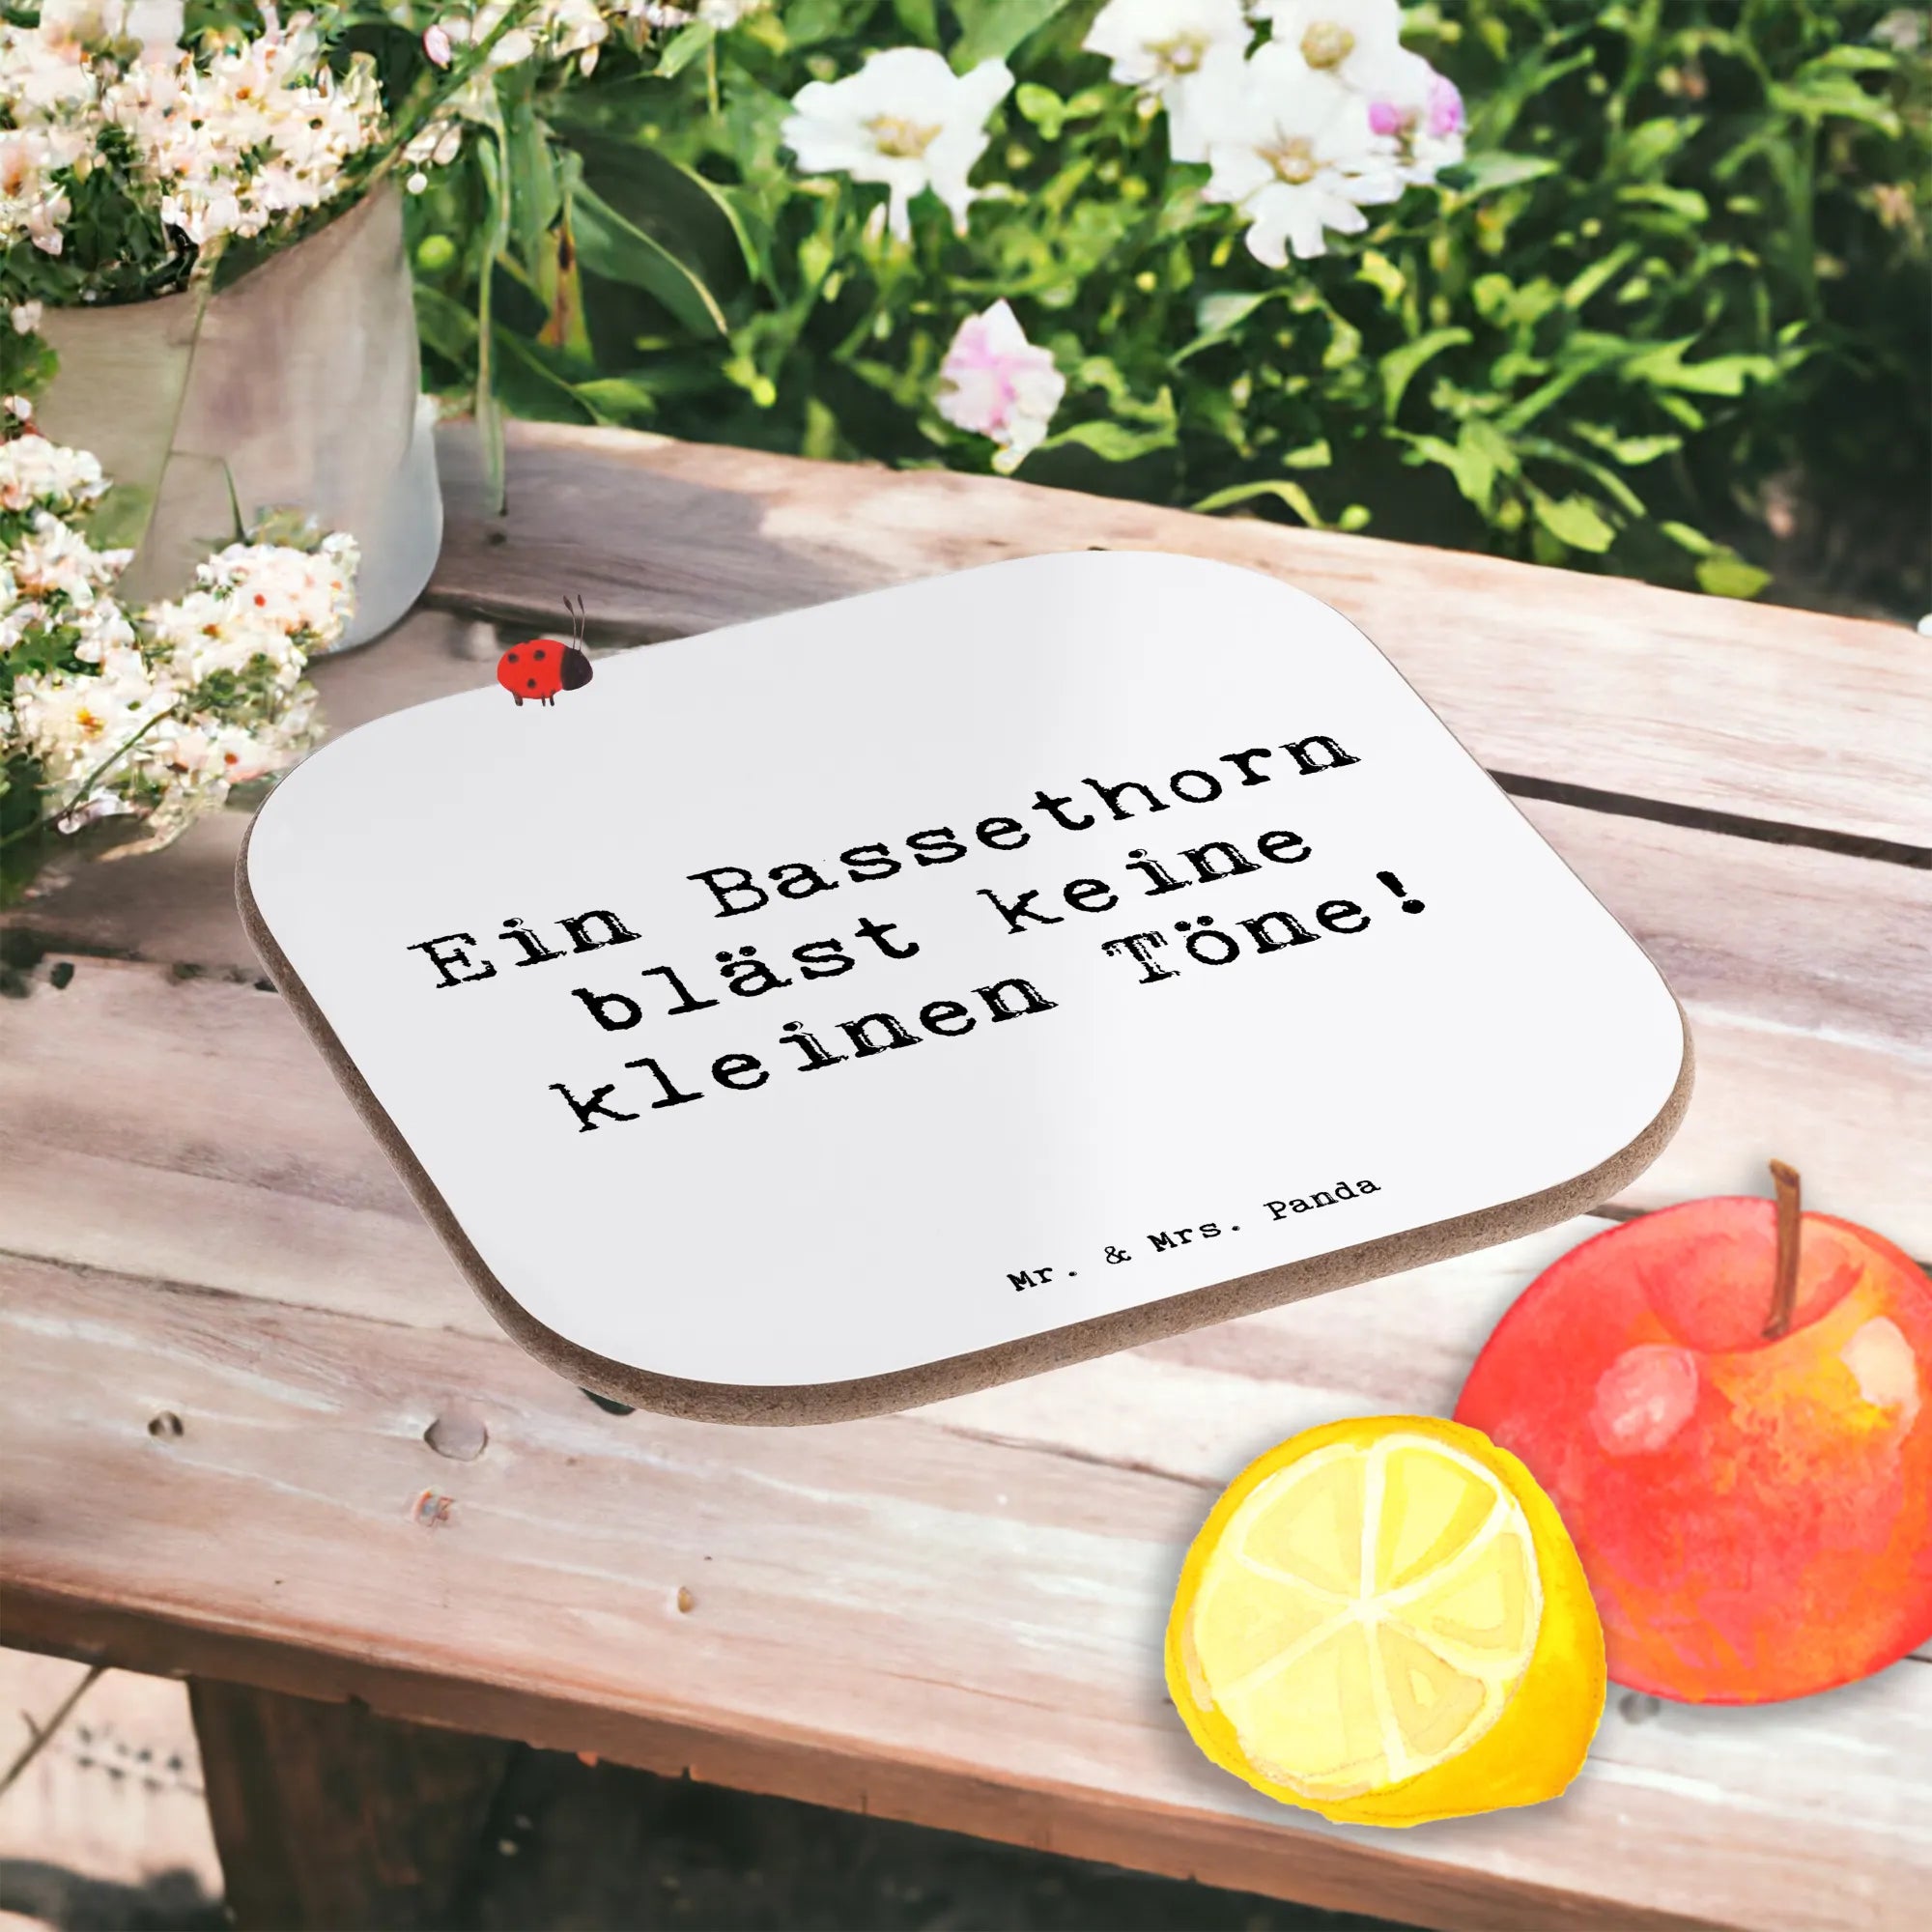 Ein Bassethorn
bläst keine
kleinen Töne!
Mr. & Mrs. Panda